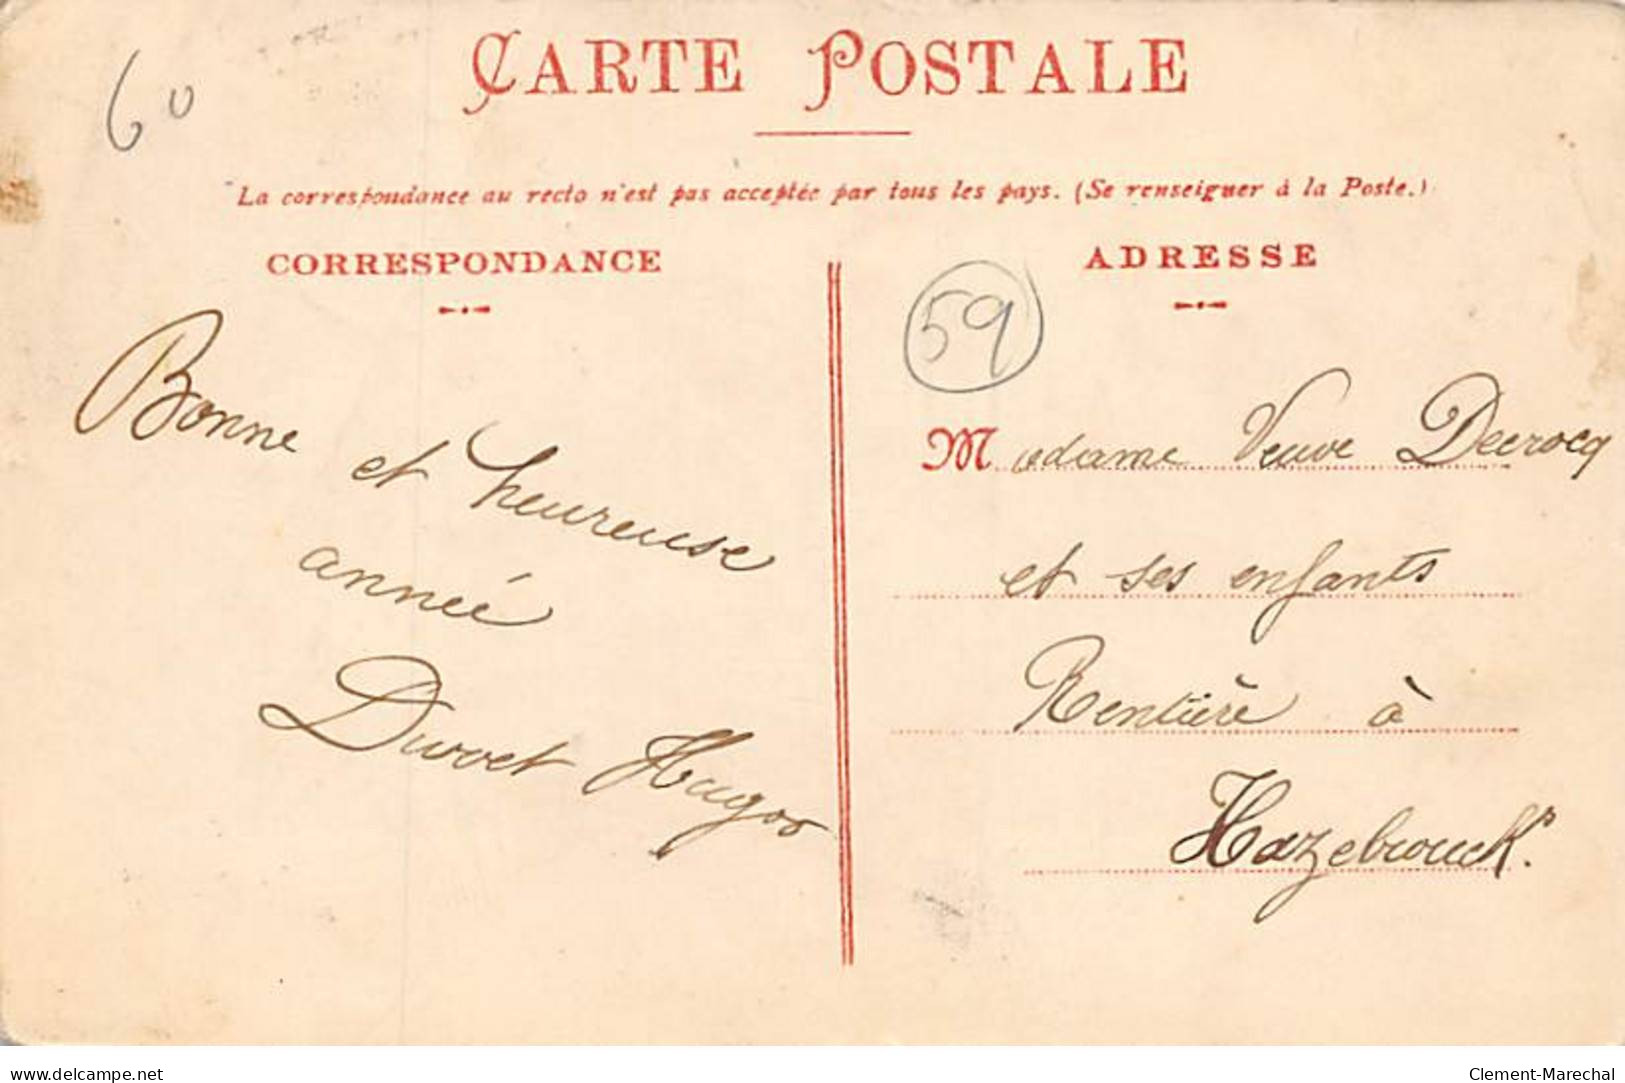 60
CARTE POSTALE
La correspondance au recto n'est pas acceptée par tous les pays. (Se renseigner à la Poste.)
CORRESPONDANCE
Bonne
et heureuse
année
Duvvet Hugo
ADRESSE
59
Madame Veuve Decrocq
et ses enfants
Rentière à
Hazebrouck.
delcampe.net
Clement-Marechal